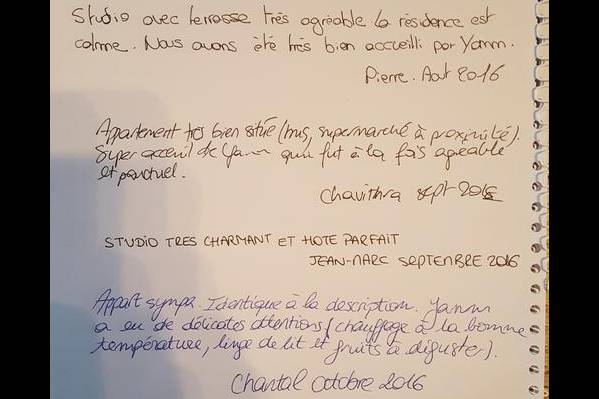 Studio avec terrasse très agréable la résidence est
calme. Nous avons été très bien accueilli par Yann.
Pierre. Aout 2016
Appartement très bien situé (bus, supermarché à proximité).
Super acceuil de Yann qui fut à la fois agréable
et ponctuel.
Chavithra sept 2016
STUDIO TRES CHARMANT ET HOTE PARFAIT
JEAN-MARC SEPTEMBRE 2016
Appart sympa. Identique à la description. Yann
a eu de délicates attentions (chauffage à la bonne
température, linge de lit et fruits à déguster).
Chantal Octobre 2016